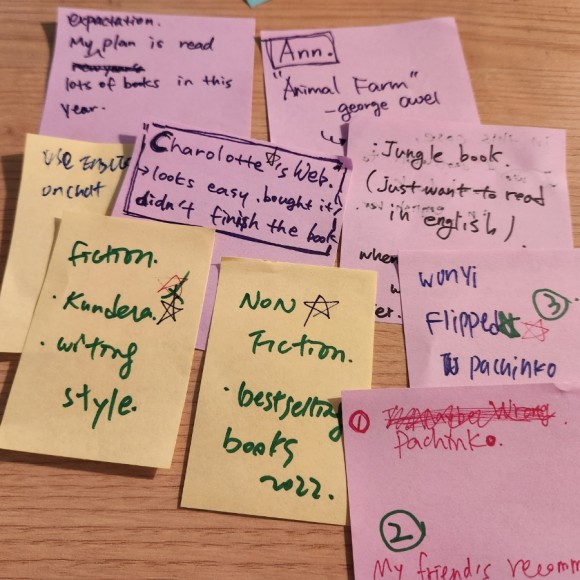 expactation.
My plan is read
lots of books in this
year.
Ann.
"Animal Farm"
-george owel
"Charolotte's Web."
→ looks easy, bought it,
didn't finish the book
· Jungle book.
(just want to read
in english)
when
er.
use
on chat
fiction.
· Kundera.
· writing
style.
NON
Fiction.
· bestselling
books
2022.
wonyi
Flipped
③
pachinko
① Wrong
pachinko.
②
My friend's recomm